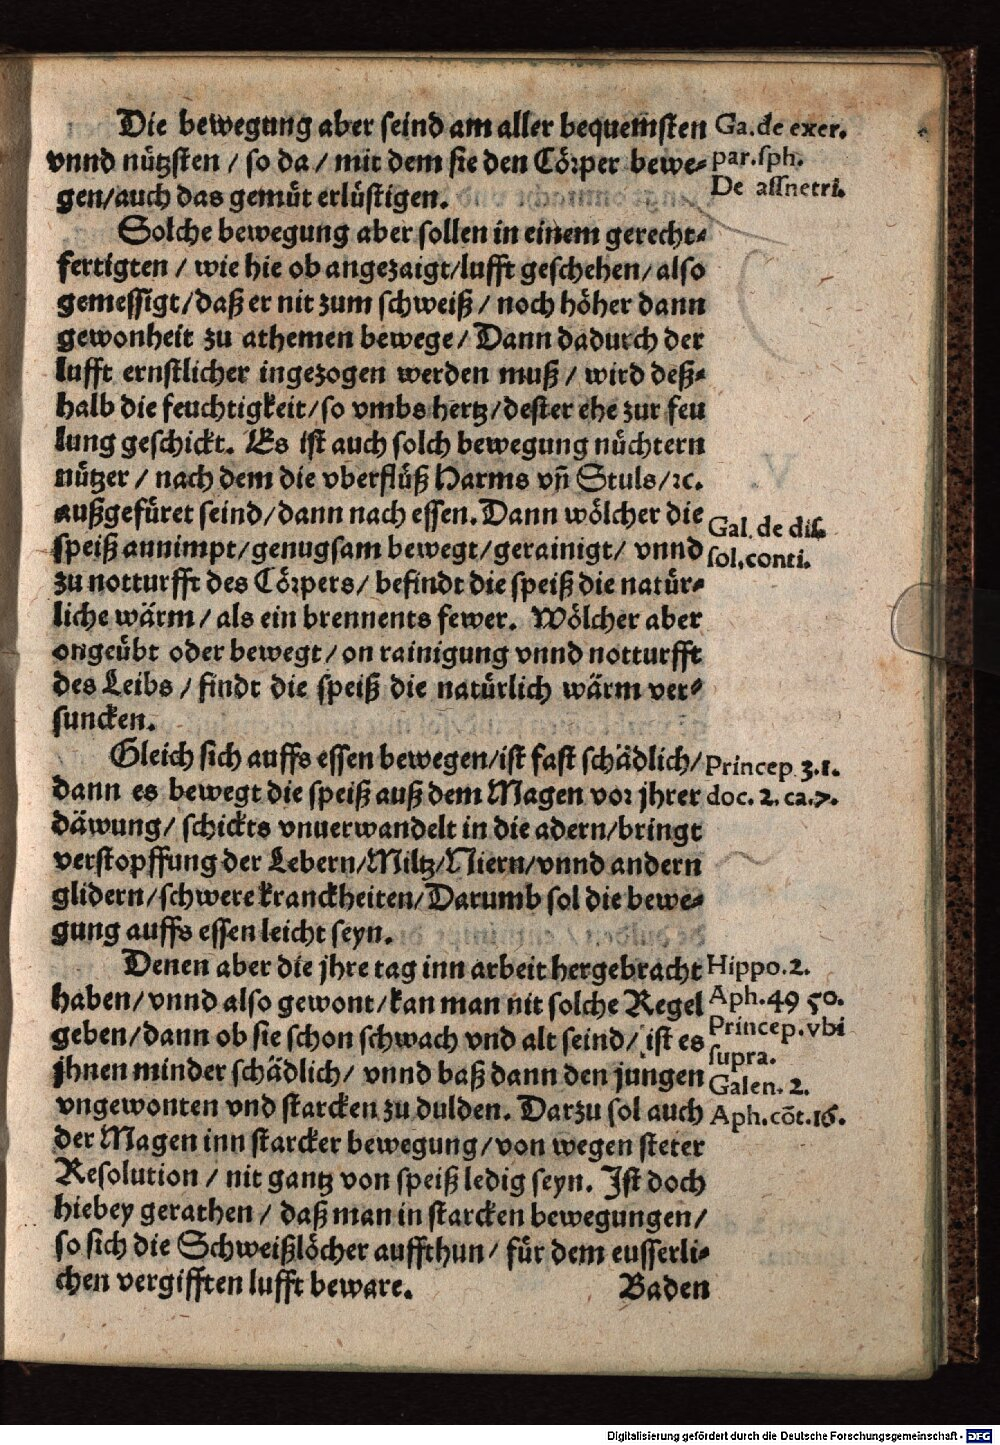 Die bewegung aber seind am aller bequemsten
vnnd nützsten / so da / mit dem sie den Cörper bewe-
gen/auch das gemüt erlüstigen.
Ga.de exer.
par.sph.
De assnetri.
Solche bewegung aber sollen in einem gerecht-
fertigten / wie hie ob angezaigt/lufft geschehen/also
gemessigt/daß er nit zum schweiß / noch höher dann
gewonheit zu athemen bewege/ Dann dadurch der
lufft ernstlicher ingezogen werden muß / wird deß-
halb die feuchtigkeit/so vmbs hertz/dester ehe zur feu
lung geschickt. Es ist auch solch bewegung nüchtern
nützer / nach dem die vberflüß Harms vñ Stuls/ꝛc.
außgefüret seind/dann nach essen. Dann wölcher die
speiß annimpt/genugsam bewegt/gerainigt/ vnnd
zu notturfft des Cörpers/ befindt die speiß die natür-
liche wärm / als ein brennents fewer. Wölcher aber
ongeübt oder bewegt / on rainigung vnnd notturfft
des Leibs / findt die speiß die natürlich wärm ver-
suncken.
Gal. de dis
sol.conti.
Gleich sich auffs essen bewegen/ist fast schädlich/
dann es bewegt die speiß auß dem Magen vor jhrer
däwung/ schickts vnuerwandelt in die adern/bringt
verstopffung der Lebern/Miltz/Niern/vnnd andern
glidern/schwere kranckheiten/Darumb sol die bewe-
gung auffs essen leicht seyn.
Princep 3.1.
doc. 2. ca.7.
Denen aber die jhre tag inn arbeit hergebracht
haben/ vnnd also gewont/kan man nit solche Regel
geben/dann ob sie schon schwach vnd alt seind/ ist es
jhnen minder schädlich/ vnnd baß dann den jungen
vngewonten vnd starcken zu dulden. Darzu sol auch
der Magen inn starcker bewegung/von wegen steter
Resolution / nit gantz von speiß ledig seyn. Ist doch
hiebey gerathen / daß man in starcken bewegungen/
so sich die Schweißlöcher auffthun/ für dem eusserli-
chen vergifften lufft beware.
Hippo.2.
Aph.49 50.
Princep.vbi
supra.
Galen. 2.
Aph.cõt.16.
Baden
Digitalisierung gefördert durch die Deutsche Forschungsgemeinschaft - DFG